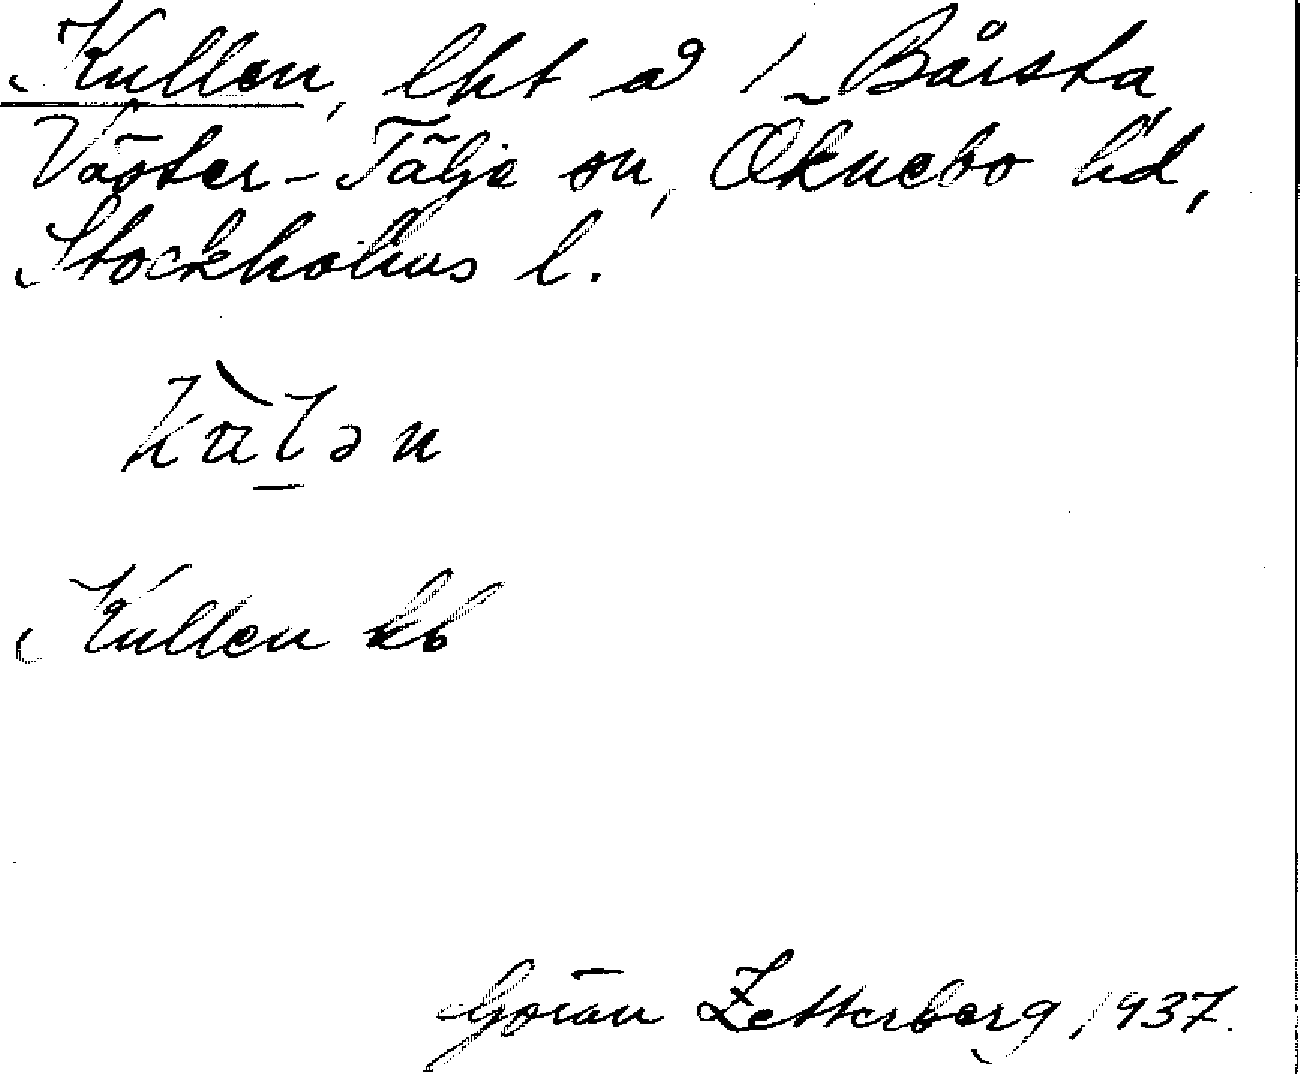 Kullen, lht å 1 Bårsta
Väster-Tälje sn, Öknebo hd,
Stockholms l.
kùlən
Kullen kb
Göran Zetterberg 1937.